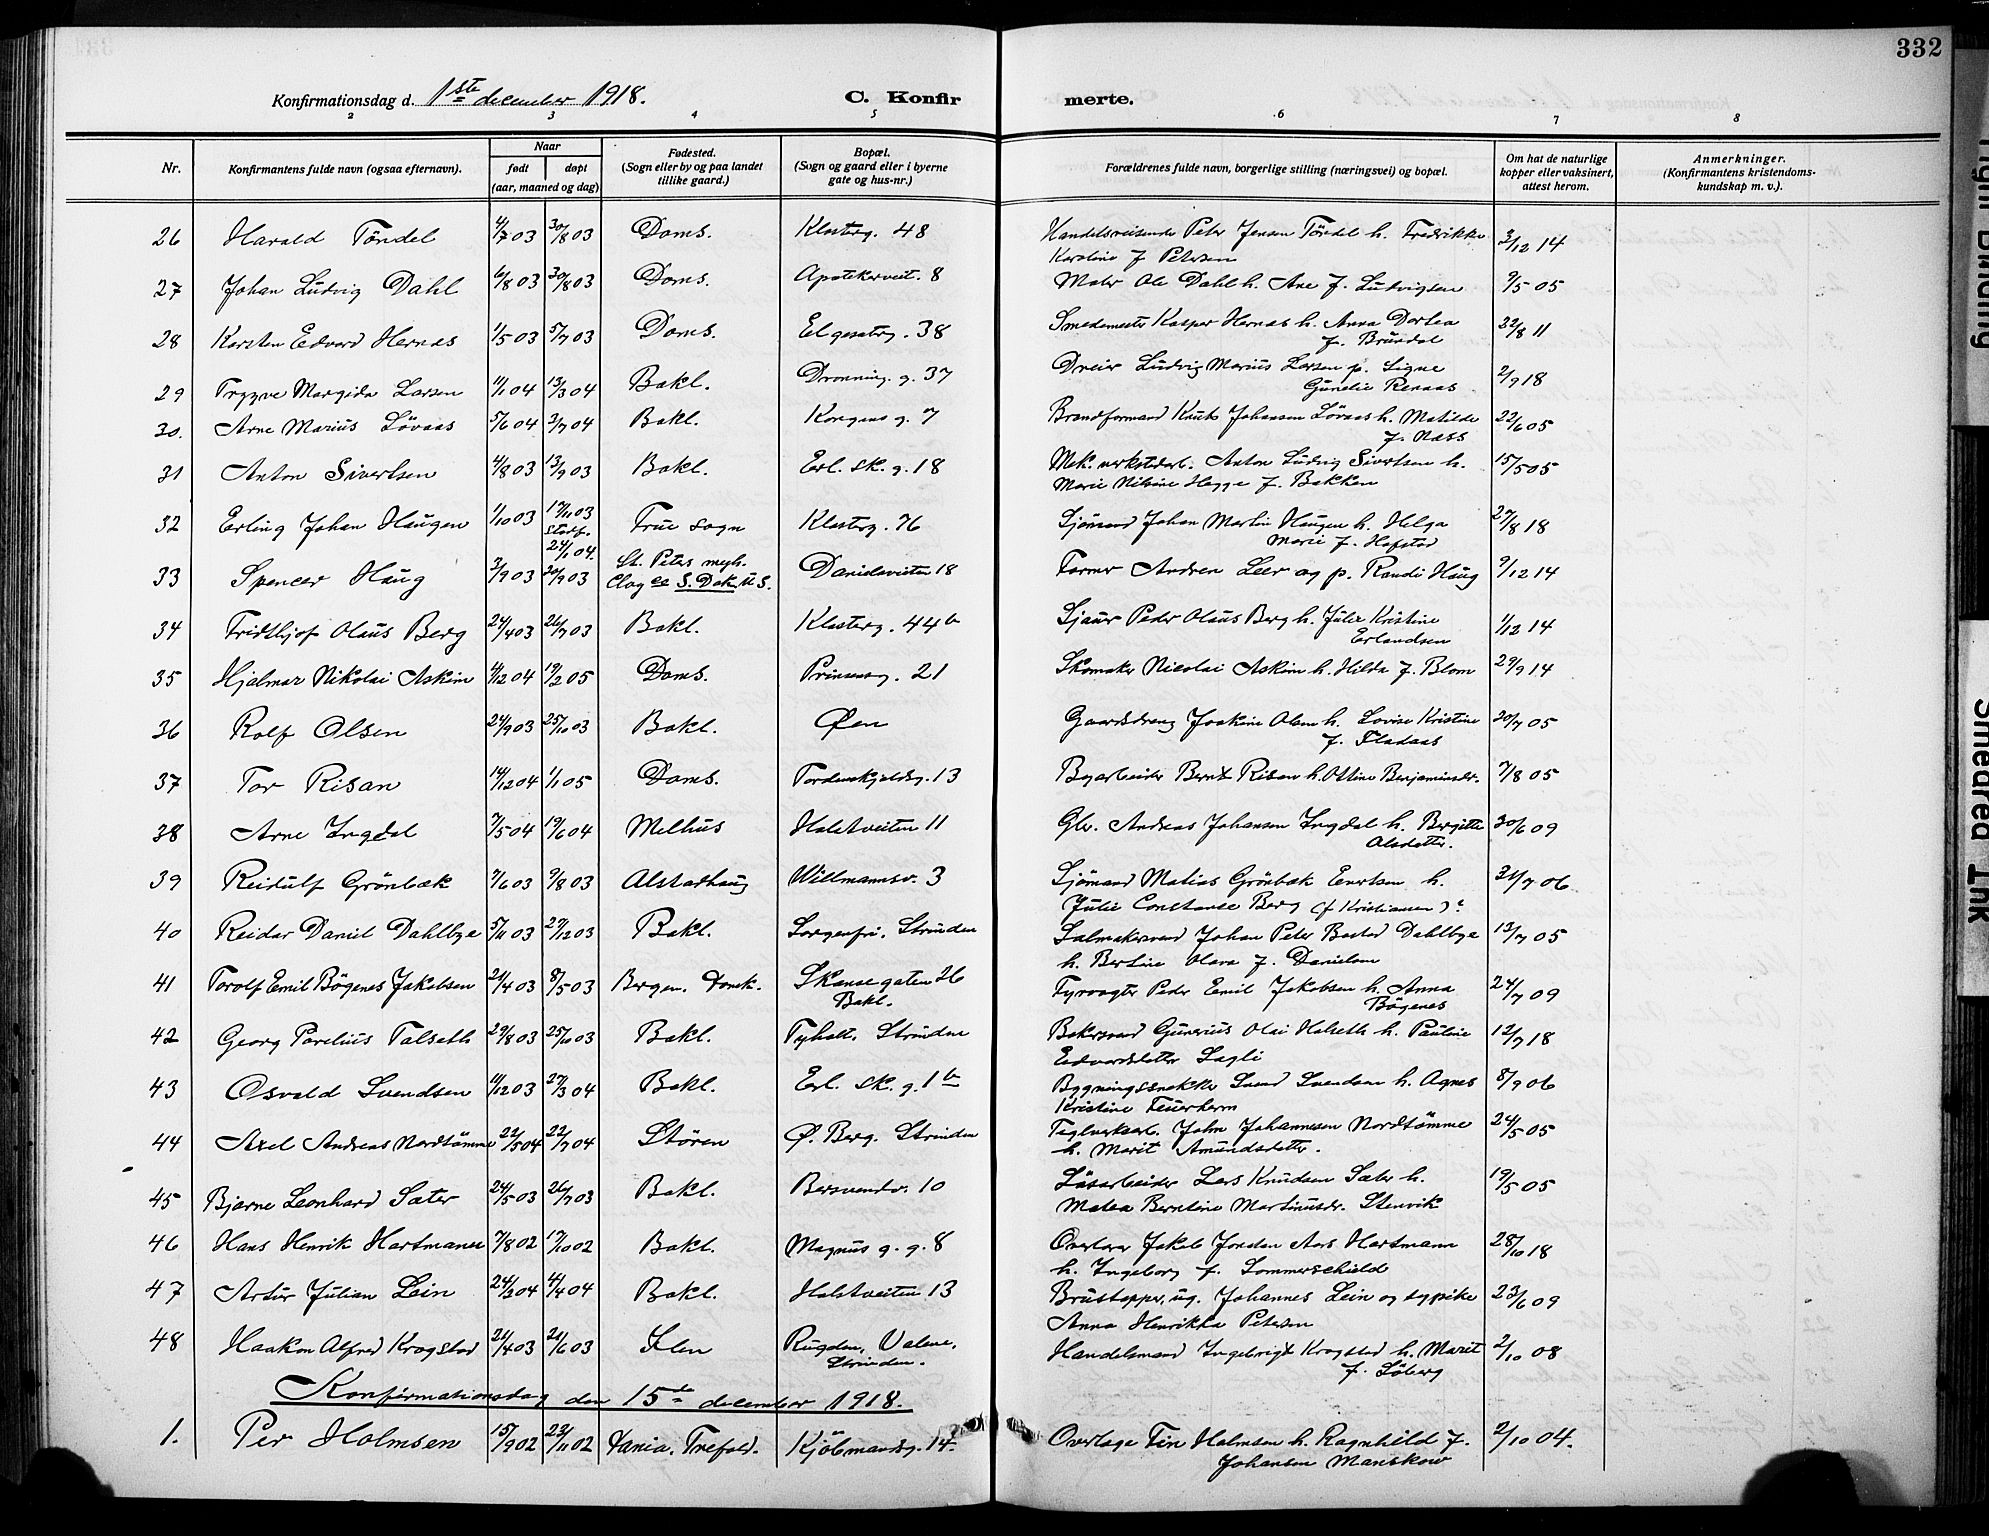 332
Konfirmationsdag d. 1ste december 1918. C. Konfirmerte.
2 3 4 5 6 7 8
Nr. Konfirmantens fulde navn (ogsaa efternavn). Naar født døpt (aar, maaned og dag) Fødested. (Sogn eller by og paa landet tillike gaard.) Bopæl. (Sogn og gaard eller i byerne gate og hus-nr.) Forældrenes fulde navn, borgerlige stilling (næringsvei) og bopæl. Om hat de naturlige kopper eller vaksinert, attest herom. Anmerkninger. (Konfirmantens kristendomskundskap m. v.).
26 Harald Töndel 4/7 03 30/8 03 Doms. Klosterg. 48 Handelsreisende Peter Jensen Töndel h. Fredrikke 3/12 14
Karoline f. Petersen
27 Johan Ludvig Dahl 6/8 03 30/8 03 Doms. Apotekerveit. 8 Maler Ole Dahl h. Ane f. Ludvigsen 9/5 05
28 Karsten Edvard Hernas 1/5 03 5/7 03 Doms. Elgesætrg. 38 Smedemester Kasper Hernas h. Anna Dortea 22/8 11
f. Brundal
29 Trygve Margido Larsen 11/1 04 13/3 04 Bakl. Dronning. g. 37 Dreier Ludvig Marius Larsen p. Signe 2/9 18
Gunelie Renaas
30. Arne Marius Lövaas 5/6 04 3/7 04 Bakl. Kongens g. 7 Brandformand Knut Johansen Lövaas h. Matilde 22/6 05
f. Næss
31 Anton Sivertsen 4/8 03 13/9 03 Bakl. Erl. sk. g. 18 Mek. verkstedarb. Anton Ludvig Sivertsen h. 15/5 05
Marie Nilsine Hegge f. Bakken
32 Erling Johan Haugen 1/10 03 19/11 03 Frue sogn Klosterg. 76 Sjömand Johan Martin Haugen h. Helga 27/8 18
stadf. 24/1 04. Marie f. Hofstad
33 Spencer Haug 3/9 03 20/9 03 St. Peters mgh. Danielsveiten 18 Farmer Andren Leer og p. Randi Haug 9/12 14
Clay co S. Dak. U.S.
34 Fridthjof Olaus Berg 24/4 03 26/7 03 Bakl. Klosterg. 44 b Sjauer Peder Olaus Berg h. Julie Kristine 1/12 14
Erlandsen
35 Hjalmar Nikolai Askim 4/12 04 19/2 05 Doms. Prinsensg. 21 Skomaker Nicolai Askim h. Hilda f. Blom 29/9 14
36 Rolf Olsen 24/9 03 25/10 03 Bakl. Øen Gaardsdreng Joakim Olsen h. Lovise Kristine 20/7 05
f. Fladaas
37 Tor Risan 14/12 04 1/1 05 Doms. Tordenskjoldsg. 13 Byarbeider Bernt Risan h. Ottine Benjaminsdr. 7/8 05
38 Arne Ingdal 7/5 04 19/6 04 Melhus Holstveiten 11 Gbr. Andreas Johansen Ingdal h. Bergitte 30/6 09
Olsdatter.
39 Reidulf Grönbæk 7/6 03 9/8 03 Alstadhaug Willmannsv. 3 Sjömand Matias Grönbæk Evertsen h. 31/7 06
Julie Constanse Berg (f. Kristiansen)?
40 Reidar Daniel Dahlbye 5/11 03 27/12 03 Bakl. Sorgenfri, Strinden Salmakersvend Johan Peter Bastad Dahlbye 13/7 05
h. Bertine Olava f. Danielsen
41 Torolf Emil Bögenes Jakobsen 21/4 03 8/5 03 Bergen. Domk. Skansegaten 26 Fyrvogter Peder Emil Jakobsen h. Anna 24/7 09
Bakl. Bögenes
42 Georg Parelius Talseth 29/8 03 25/10 03 Bakl. Tyholt, Strinden Bakersvend Gunerius Olai Halseth h. Pauline 12/7 18
Edvardsdatter Sagli
43 Osvald Svendsen 11/12 03 27/3 04 Bakl. Erl. sk. g. 1 b Bygningssnekker Svend Svendsen h. Agnes 8/9 06
Kristine Feuerherm
44 Axel Andreas Nordtömme 22/5 04 22/7 04 Stören Ø. Berg. Strinden Teglverksarb. John Johannesen Nordtömme 24/5 05
h. Marit Amundsdatter.
45 Bjarne Leonhard Sæter 24/5 03 26/7 03 Bakl. Bersvendv. 10 Lösarbeider Lars Knudsen Sæter h. 19/5 05
Matea Berntine Martinusdr. Stenvik
46 Hans Henrik Hartmann 7/8 02 17/10 02 Bakl. Magnus g. g. 8 Overlærer Jakob Jordan Aars Hartmann 28/10 18
h. Ingeborg f. Sommerschield
47 Artur Julian Lein 24/2 04 4/4 04 Bakl. Holstveiten 13 Brustapper, ug. Johannes Lein og sypike 23/6 09
Anna Henrikka Petersen
48 Haakon Alfred Krogstad 21/4 03 21/6 03 Ilen Rugden, Valene, Handelsmand Ingebrigt Krogstad h. Marit 2/10 08
Strinden. f. Söberg
Konfirmationsdag den 15de december 1918.
1. Per Holmsen 15/9 02 23/11 02 Trefold. Kjöbmandsg. 14 Overlæge Fin Holmsen h. Ragnhild f. 2/10 04.
Johansen Manskow
Tight Binding
Smeared Ink